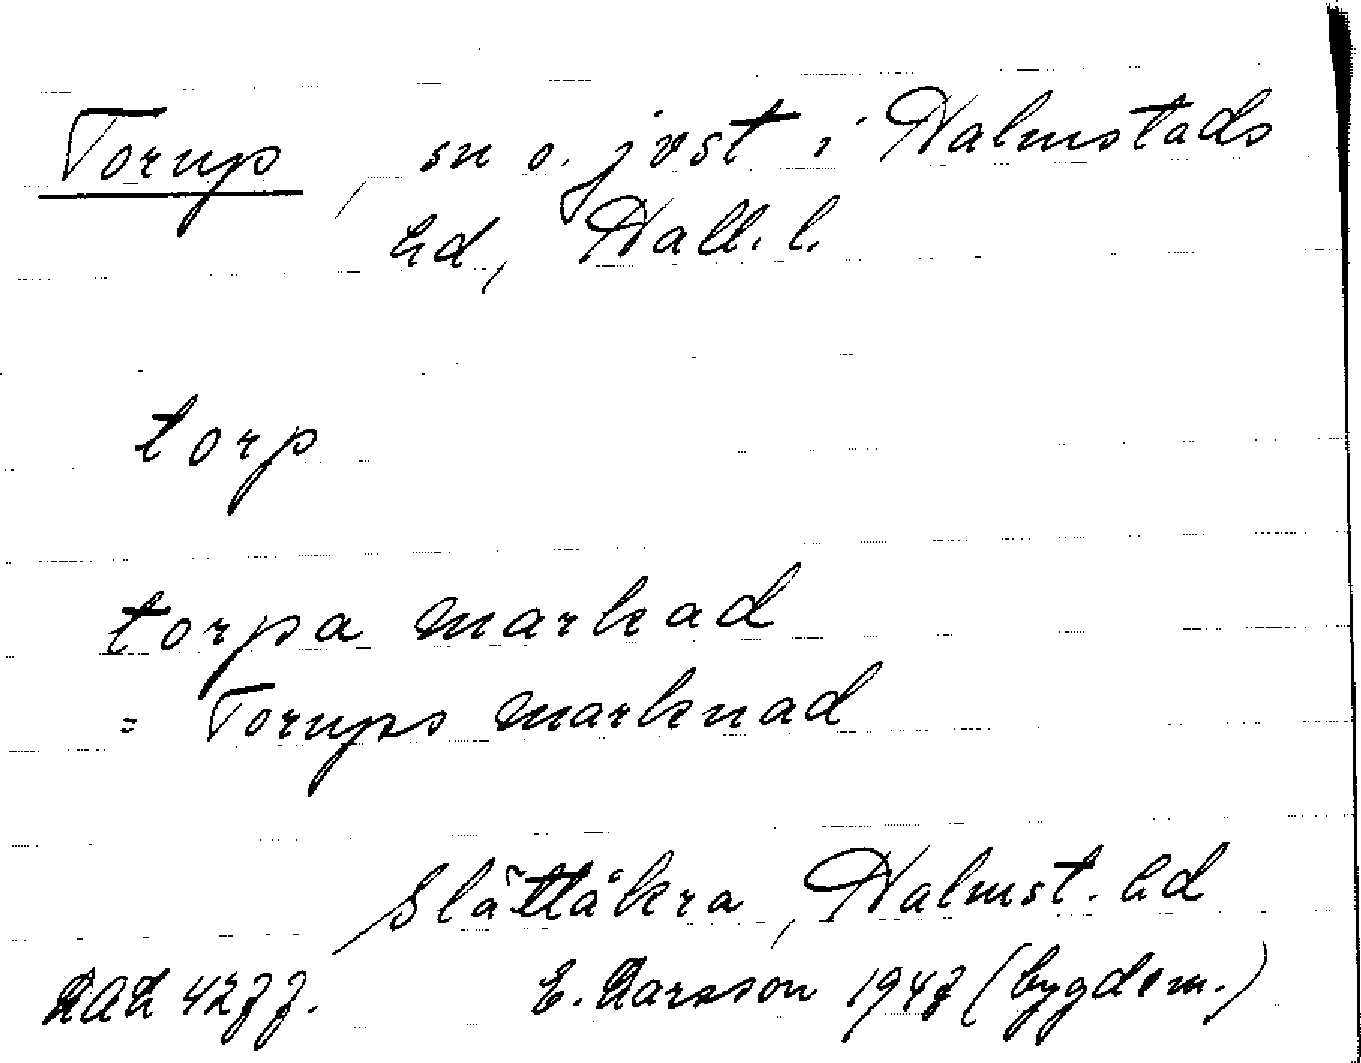 Torup, sn o. jvst i Halmstads
hd, Hall. l.
torp
torpa markad
= Torups marknad
Slättåkra, Halmst. hd
E. Larsson 1947 (bygdem.)